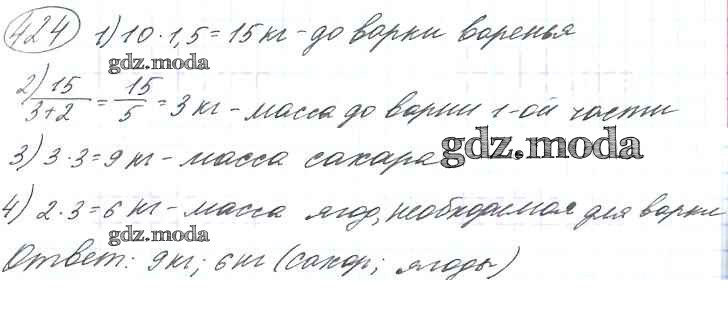 424 1) 10 · 1,5 = 15 кг - до варки варенья
gdz.moda
2) 15/3+2 = 15/5 = 3 кг - масса до варки 1-ой части
3) 3 · 3 = 9 кг - масса сахара gdz.moda
4) 2 · 3 = 6 кг - масса ягод, необходимая для варки
gdz.moda
Ответ: 9 кг; 6 кг (сахар; ягоды)